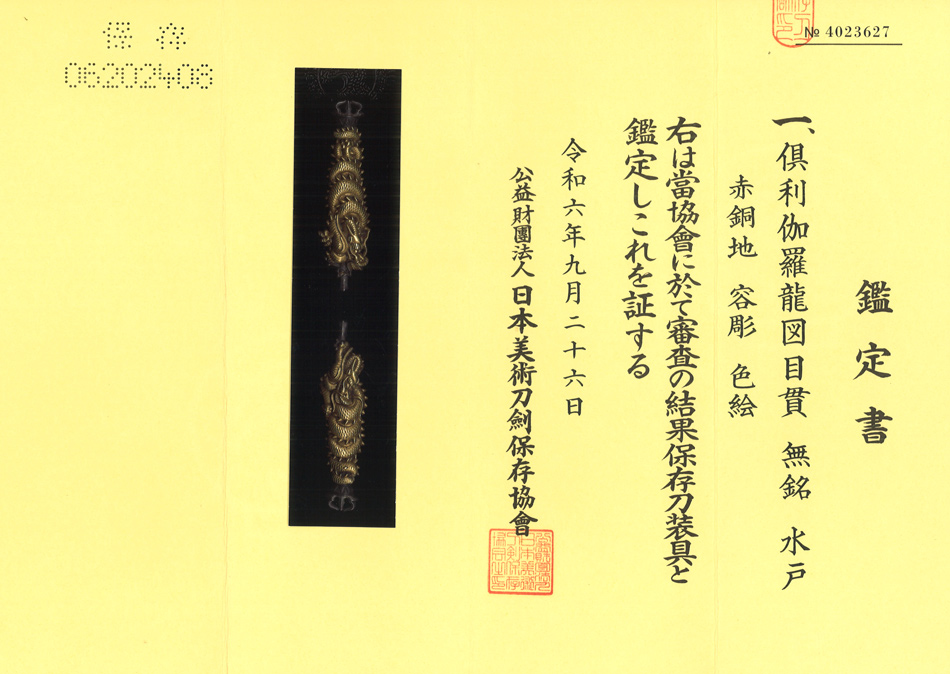 保存
06202408
№ 4023627
鑑定書
一、倶利伽羅龍図目貫 無銘 水戸
赤銅地 容彫 色絵
右は當協會に於て審査の結果保存刀装具と
鑑定しこれを証する
令和六年九月二十六日
公益財團法人 日本美術刀剣保存協會